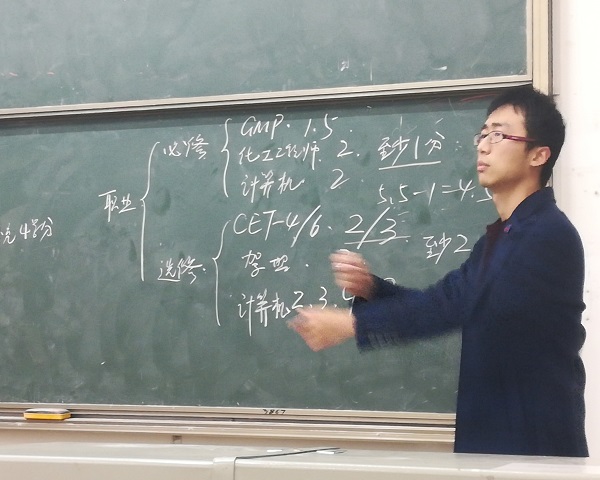 GMP. 1.5
必修 化工工程师. 2. 至少1分
计算机. 2
5.5-1=4.5
职业
4学分
CET-4/6. 2/3.
至少2
选修. 驾照.
计算机2.3.4
3867